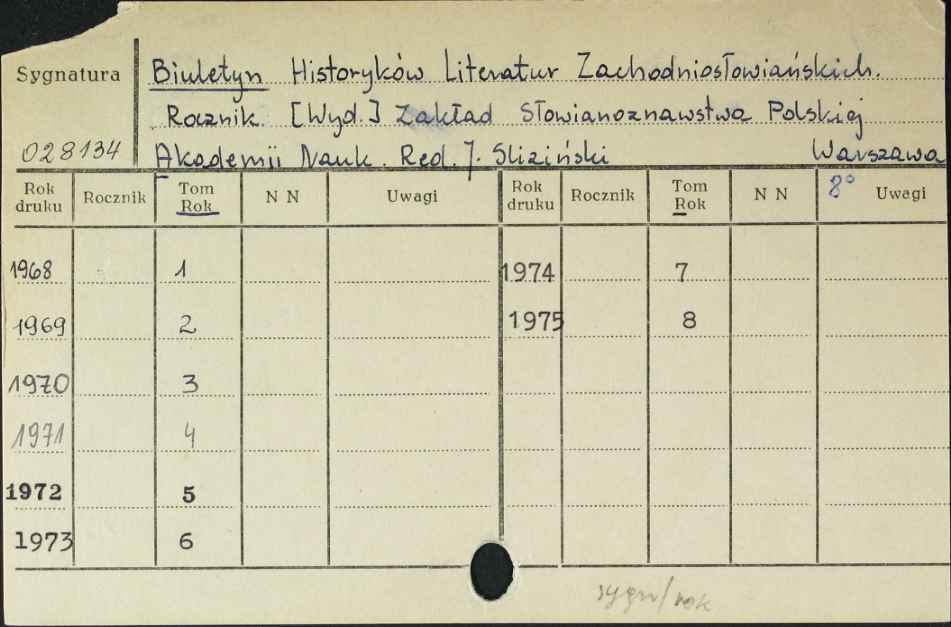 Sygnatura Biuletyn Historyków Literatur Zachodniosłowiańskich.
Rocznik [Wyd.] Zakład Słowianoznawstwa Polskiej
028134 Akademii Nauk. Red. J. Śliziński Warszawa
Rok druku Rocznik Tom Rok N N Uwagi Rok druku Rocznik Tom Rok N N 8° Uwagi
1968 1 1974 7
1969 2 1975 8
1970 3
1971 4
1972 5
1973 6
sygn/rok